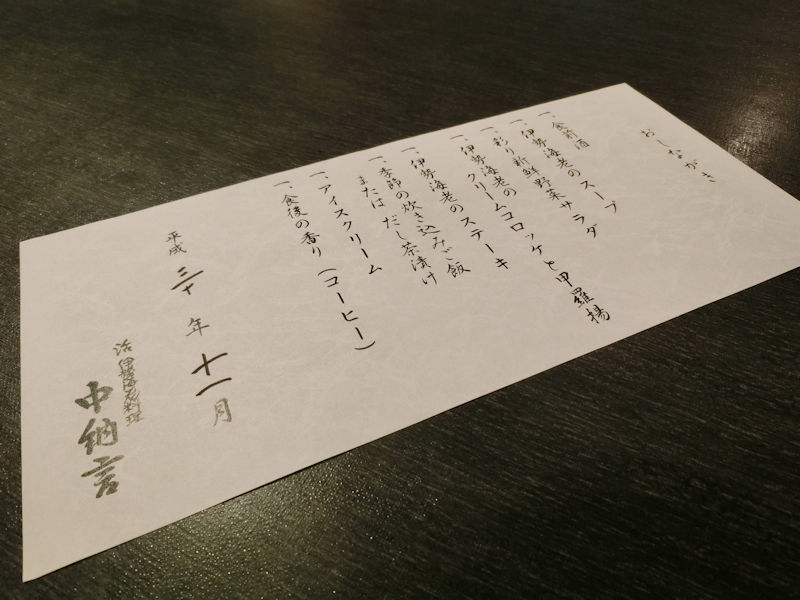 おしながき
一、食前酒
一、伊勢海老のスープ
一、彩り新鮮野菜サラダ
一、伊勢海老の
クリームコロッケと甲羅揚
一、伊勢海老のステーキ
一、季節の炊き込みご飯
または だし茶漬け
一、アイスクリーム
一、食後の香り（コーヒー）
平成 三十 年 十一 月
活伊勢海老料理
中納言